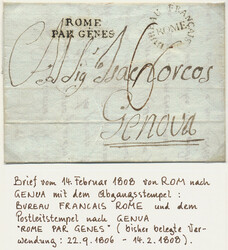 ROME
PAR GENES
BUREAU FRANÇAIS
ROME
Genova
Brief vom 14. Februar 1808 von ROM nach
GENUA mit dem Abgangsstempel :
BUREAU FRANCAIS ROME und dem
Postleitstempel nach GENUA
"ROME PAR GENES" ( bisher belegte Ver-
wendung : 22.9.1806 - 14.2.1808 ).